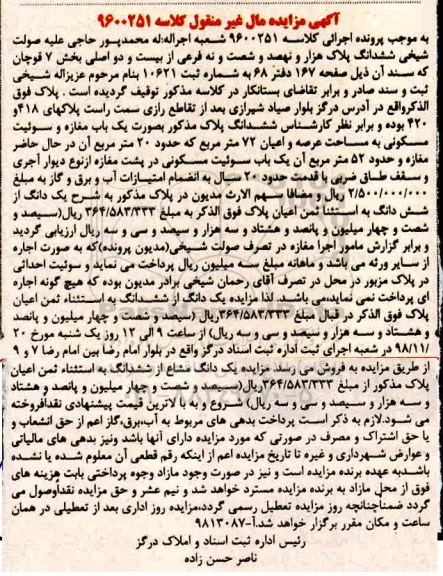 آگهی مزایده مال غیر منقول کلاسه ۹۶۰۰۲۵۱
به موجب پرونده اجرائی کلاسه ۹۶۰۰۲۵۱ شعبه اجراله:له محمدپور حاجی علیه صولت
شیخی ششدانگ پلاک هزار و نهصد و شصت و نه فرعی از بیست و دو اصلی بخش ۷ قوچان
که سند آن ذیل صفحه ۱۶۷ دفتر ۶۸ به شماره ثبت ۱۰۶۲۱ بنام مرحوم عزیزاله شیخی
ثبت و سند صادر و برابر تقاضای بستانکار در کلاسه مذکور توقیف گردیده است . پلاک فوق
الذکرواقع در آدرس درگز بلوار صیاد شیرازی بعد از تقاطع رازی سمت راست پلاکهای ۴۱۸و
۴۲۰ بوده و برابر نظر کارشناس ششدانگ پلاک مذکور بصورت یک باب مغازه و سوئیت
مسکونی به مساحت عرصه و اعیان ۷۲ متر مربع که حدود ۲۰ متر مربع آن در حال حاضر
مغازه و حدود ۵۲ متر مربع آن یک باب سوئیت مسکونی در پشت مغازه ازنوع دیوار آجری
و سقف طاق ضربی با قدمت حدود ۲۰ سال به انضمام امتیازات آب و برق و گاز به مبلغ
۲/۵۰۰/۰۰۰/۰۰۰ ریال و مضافا سهم الارث مدیون در پلاک مذکور به شرح یک دانگ از
شش دانگ به استثنا ثمن اعیان پلاک فوق الذکر به مبلغ ۳۶۴/۵۸۳/۳۳۳ ریال(سیصد و
شصت و چهار میلیون و پانصد و هشتاد و سه هزار و سیصد و سی و سه ریال ارزیابی گردید
و برابر گزارش مامور اجرا مغازه در تصرف صولت شیخی(مدیون پرونده)که به صورت اجاره
از سایر ورثه می باشد و ماهانه مبلغ سه میلیون ریال پرداخت می نماید و سوئیت احداثی
در پلاک مزبور در محل در تصرف آقای رحمان شیخی برادر مدیون بوده که هیچ گونه اجاره
ای پرداخت نمی نماید،می باشد. لذا مزایده یک دانگ از ششدانگ به استثناء ثمن اعیان
پلاک فوق الذکر در قبال مبلغ ۳۶۴/۵۸۳/۳۳۳ریال (سیصد و شصت و چهار میلیون و پانصد
و هشتاد و سه هزار و سیصد و سی و سه ریال) از ساعت ۹ الی ۱۲ روز یک شنبه مورخ ۲۰
/۹۸/۱۱ در شعبه اجرای ثبت اداره ثبت اسناد درگز واقع در بلوار امام رضا بین امام رضا ۷ و ۹
از طریق مزایده به فروش می رسد. مزایده یک دانگ مشاع از ششدانگ به استثناء ثمن اعیان
پلاک مذکور از مبلغ ۳۶۴/۵۸۳/۳۳۳ریال(سیصد و شصت و چهار میلیون و پانصد و هشتاد
و سه هزار و سیصد و سی و سه ریال) شروع و به با لاترین قیمت پیشنهادی نقدافروخته
می شود.لازم به ذکر است پرداخت بدهی های مربوط به آب،برق،گاز اعم از حق انشعاب و
یا حق اشتراک و مصرف در صورتی که مورد مزایده دارای آنها باشد ونیز بدهی های مالیاتی
و عوارض شهرداری و غیره تا تاریخ مزایده اعم از اینکه رقم قطعی آن معلوم شده یا نشده
باشدبه عهده برنده مزایده است و نیز در صورت وجود مازاد وجوه پرداختی بابت هزینه های
فوق از محل مازاد به برنده مزایده مسترد خواهد شد و نیم عشر و حق مزایده نقداًوصول می
گردد ضمناچنانچه روز مزایده تعطیل رسمی گردد،مزایده روز اداری بعد از تعطیلی در همان
ساعت و مکان مقرر برگزار خواهد شد.آ-۹۸۱۳۰۸۷
رئیس اداره ثبت اسناد و املاک درگز
ناصر حسن زاده